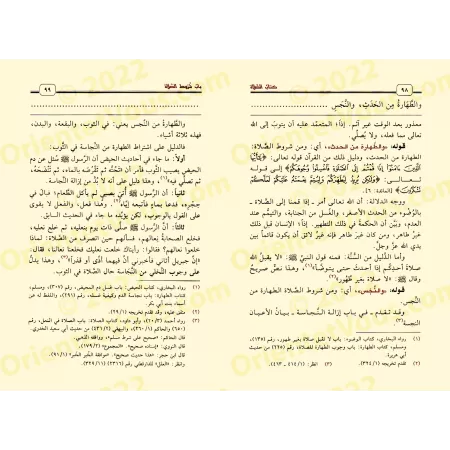 ٩٨
كتاب الصلاة
والطَّهارةُ مِن الحَدَثِ، والنَّجَسِ
معذور بعد الوقت غير آثم. إذاً؛ المتعمِّد عليه أن يتوبَ إلى الله
تعالى مما فعله، ولا يُصلِّي.
قوله: «والطَّهارة من الحدث»، أي: ومن شروط الصَّلاة
الطَّهارة من الحدث، ودليل ذلك من القرآن قوله تعالى: ﴿يَٰٓأَيُّهَا
ٱلَّذِينَ ءَامَنُوٓاْ إِذَا قُمۡتُمۡ إِلَى ٱلصَّلَوٰةِ فَٱغۡسِلُواْ وُجُوهَكُمۡ﴾ إلى قوله
تعالى: ﴿وَلَٰكِن يُرِيدُ لِيُطَهِّرَكُمۡ وَلِيُتِمَّ نِعۡمَتَهُۥ عَلَيۡكُمۡ لَعَلَّكُمۡ
تَشۡكُرُونَ﴾ [المائدة: ٦].
ووجه الدلالة: أن الله تعالى أمر ـ إذا قمنا إلى الصَّلاة ـ
بالوُضُوء من الحدث الأصغر، والغُسل من الجنابة، والتيمُّم عند
العدم، وبيَّن أن الحكمة في ذلك التطهير. إذاً؛ فالإنسان قبل ذلك
غير طاهر، ومن كان غير طاهر فإنه غير لائق أن يكون قائماً بين
يدي الله عزَّ وجلَّ.
وأما الدَّليل من السُّنَّة: فمنه قول النبيِّ ﷺ: «لا يقبلُ اللهُ
صلاةَ أحدكم إذا أحدث حتى يتوضَّأ»(١). وهذا نصٌّ صريحٌ
وقال ﷺ: «لا صلاة بغير طُهور»(٢).
قوله: «والنَّجَس»، أي: ومن شروط الصَّلاة الطَّهارة من
النجس، وقد تقدَّم ـ في باب إزالة النَّجاسة ـ بيانُ الأعيان
النجسة(٣)
(١) رواه البخاري، كتاب الوضوء: باب لا تقبل صلاة بغير طهور، رقم (١٣٥)،
ومسلم، كتاب الطهارة: باب وجوب الطهارة للصلاة، رقم (٢٢٥) من حديث
أبي هريرة.
(٢) تقدم تخريجه (١/ ٣٢٤).
(٣) انظر: (١/ ٤١٤ ـ ٤١٣).
باب شروط الصلاة
٩٩
والطَّهارة من النَّجس يعني: في الثوب، والبقعة، والبدن،
فهذه ثلاثة أشياء.
فالدليل على اشتراط الطَّهارة من النجاسة في الثَّوب:
أولاً: ما جاء في أحاديث الحيض أن الرسول ﷺ سُئل عن دم
الحيض يصيب الثَّوب فأمر أن «تَحُتَّه ثم تَقْرُصَه بالماء، ثم تَنْضَحَه،
ثم تصلِّي فيه»(١)، وهذا دليل على أنه لا بُدَّ من إزالة النَّجاسة.
ثانياً: أن الرَّسول ﷺ أُتي بصبيٍّ لم يأكل الطعام فبال في
حِجْرِه، فدعا بماءٍ فأتبعه إيَّاه(٢). وهذا فعل، والفعل لا يقوى
على القول بالوجوب، لكن يؤيِّده ما جاء في الحديث السابق.
ثالثاً: أنَّ الرسول ﷺ صلَّى ذات يوم بنعليه، ثم خلع نعليه،
فخلع الصحابةُ نعالَهم، فسألهم حين انصرف من الصَّلاة: لماذا
خلعوا نعالهم؟ قالوا: رأيناك خلعت نعليك فخلعنا نعالنا، فقال:
«إنَّ جبريل أتاني فأخبرني أنَّ فيهما أذًى أو قَذَراً»(٣)، وهذا يدلُّ
على وجوب التَّخلي من النَّجاسة حال الصَّلاة في الثوب.
(١) رواه البخاري، كتاب الحيض: باب غسل دم الحيض، رقم (٣٠٧)، ومسلم،
كتاب الطهارة: باب نجاسة الدم وكيفية غسله، رقم (٢٩١)، واللفظ له عن
أسماء بنت أبي بكر.
(٢) متفق عليه، وقد تقدم تخريجه (١/ ٢٩).
(٣) رواه أحمد (٣/ ٢٠)، وأبو داود، كتاب الصلاة: باب الصلاة في النعل، رقم
(٦٥٠)، والحاكم (١/ ٢٦٠)، والبيهقي (٢/ ٤٣١) من حديث أبي سعيد الخدري.
قال الحاكم: «صحيح على شرط مسلم»، ووافقه الذهبي.
قال النووي: «إسناده صحيح». «المجموع» (٢/ ١٧٩).
قال ابن حجر: «هذا حديث صحيح». «موافقة الخُبْر الخَبَر» (١/ ٩١).
وانظر: «العلل» للدارقطني رقم (٢٣١٦).